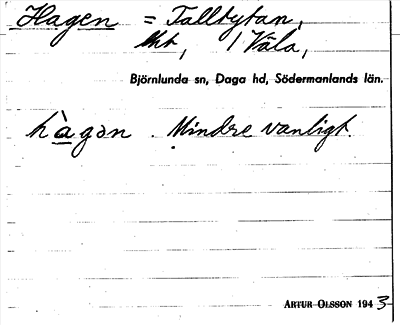 Hagen = Talltytan,
tht, 1 Våla,
Björnlunda sn, Daga hd, Södermanlands län.
hàgən. Mindre vanligt.
ARTUR OLSSON 1943